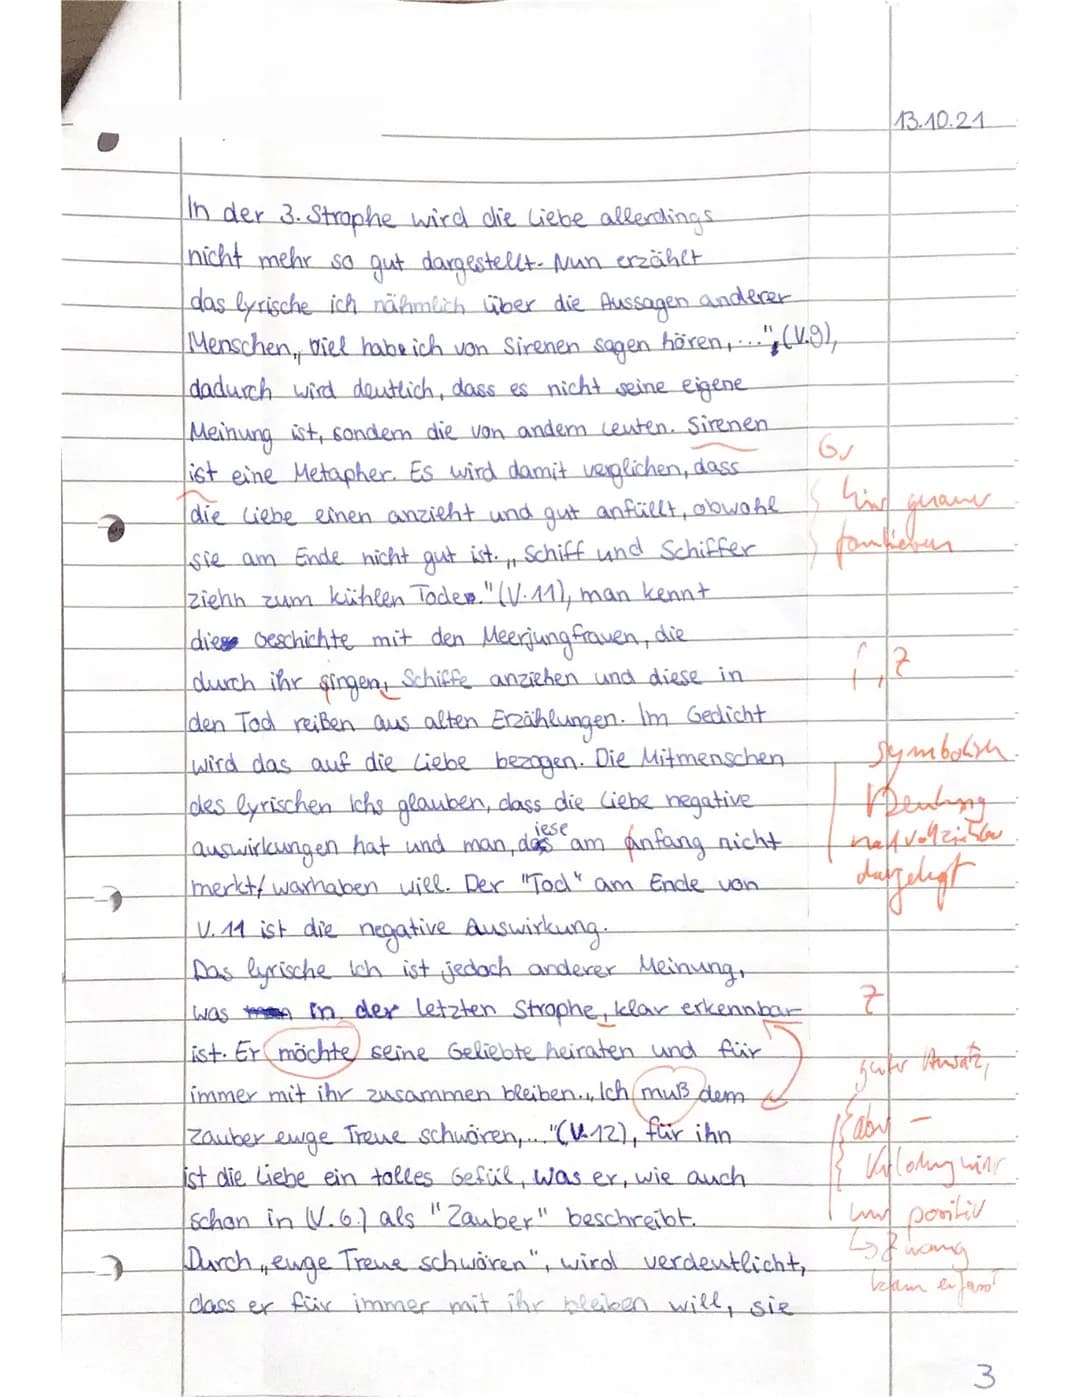 13.10.21
In der 3. Strophe wird die Liebe allerdings
nicht mehr so gut dargestellt. Nun erzählt
das lyrische ich nähmlich über die Aussagen anderer
Menschen „Viel habe ich von Sirenen sagen hören,..."; (V.9),
dadurch wird deutlich, dass es nicht seine eigene
Meinung ist, sondern die von andern Leuten. Sirenen
Gr
ist eine Metapher. Es wird damit verglichen, dass
die Liebe einen anzieht und gut anfüllt, obwohl
genauer
sie am Ende nicht gut ist. „Schiff und Schiffer
ziehn zum kühlen Tode." (V.11), man kennt
die Geschichte mit den Meerjungfrauen, die
durch ihr singen, Schiffe anziehen und diese in
f, Z
den Tod reißen aus alten Erzählungen. Im Gedicht
wird das auf die Liebe bezogen. Die Mitmenschen
symbolisch
des lyrischen Ichs glauben, dass die Liebe negative
Deutung
auswirkungen hat und man, diese am Anfang nicht
nachvollziehbar
merkt/warhaben will. Der "Tod" am Ende von
dargelegt
V. 11 ist die negative Auswirkung.
Das lyrische Ich ist jedoch anderer Meinung,
was in der letzten Strophe, klar erkennbar
Z
ist. Er möchte seine Geliebte heiraten und für
guter Ansatz,
immer mit ihr zusammen bleiben. „Ich muß dem
Zauber ewge Treue schwören,..." (V.12), für ihn
aber –
ist die Liebe ein tolles Gefül, was er, wie auch
schon in (V.6.) als "Zauber" beschreibt.
positiv
Durch „ewge Treue schwören", wird verdeutlicht,
↳ Zwang
dass er für immer mit ihr bleiben will, sie
kaum erfasst
3